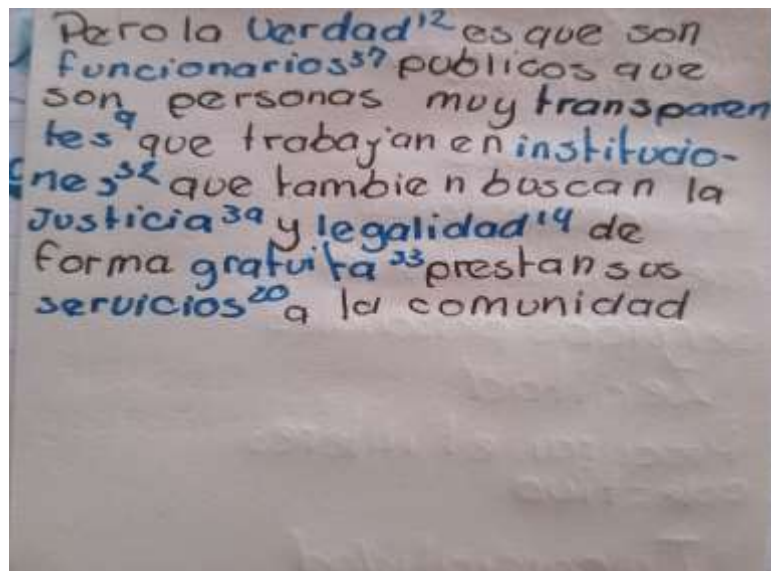 Pero la verdad¹² es que son
funcionarios³⁷ publicos que
son personas muy transparen
tes⁹ que trabajan en institucio-
nes³² que tambien buscan la
Justicia³⁹ y legalidad¹⁴ de
forma gratuita³³ prestan sus
servicios²⁰ a la comunidad